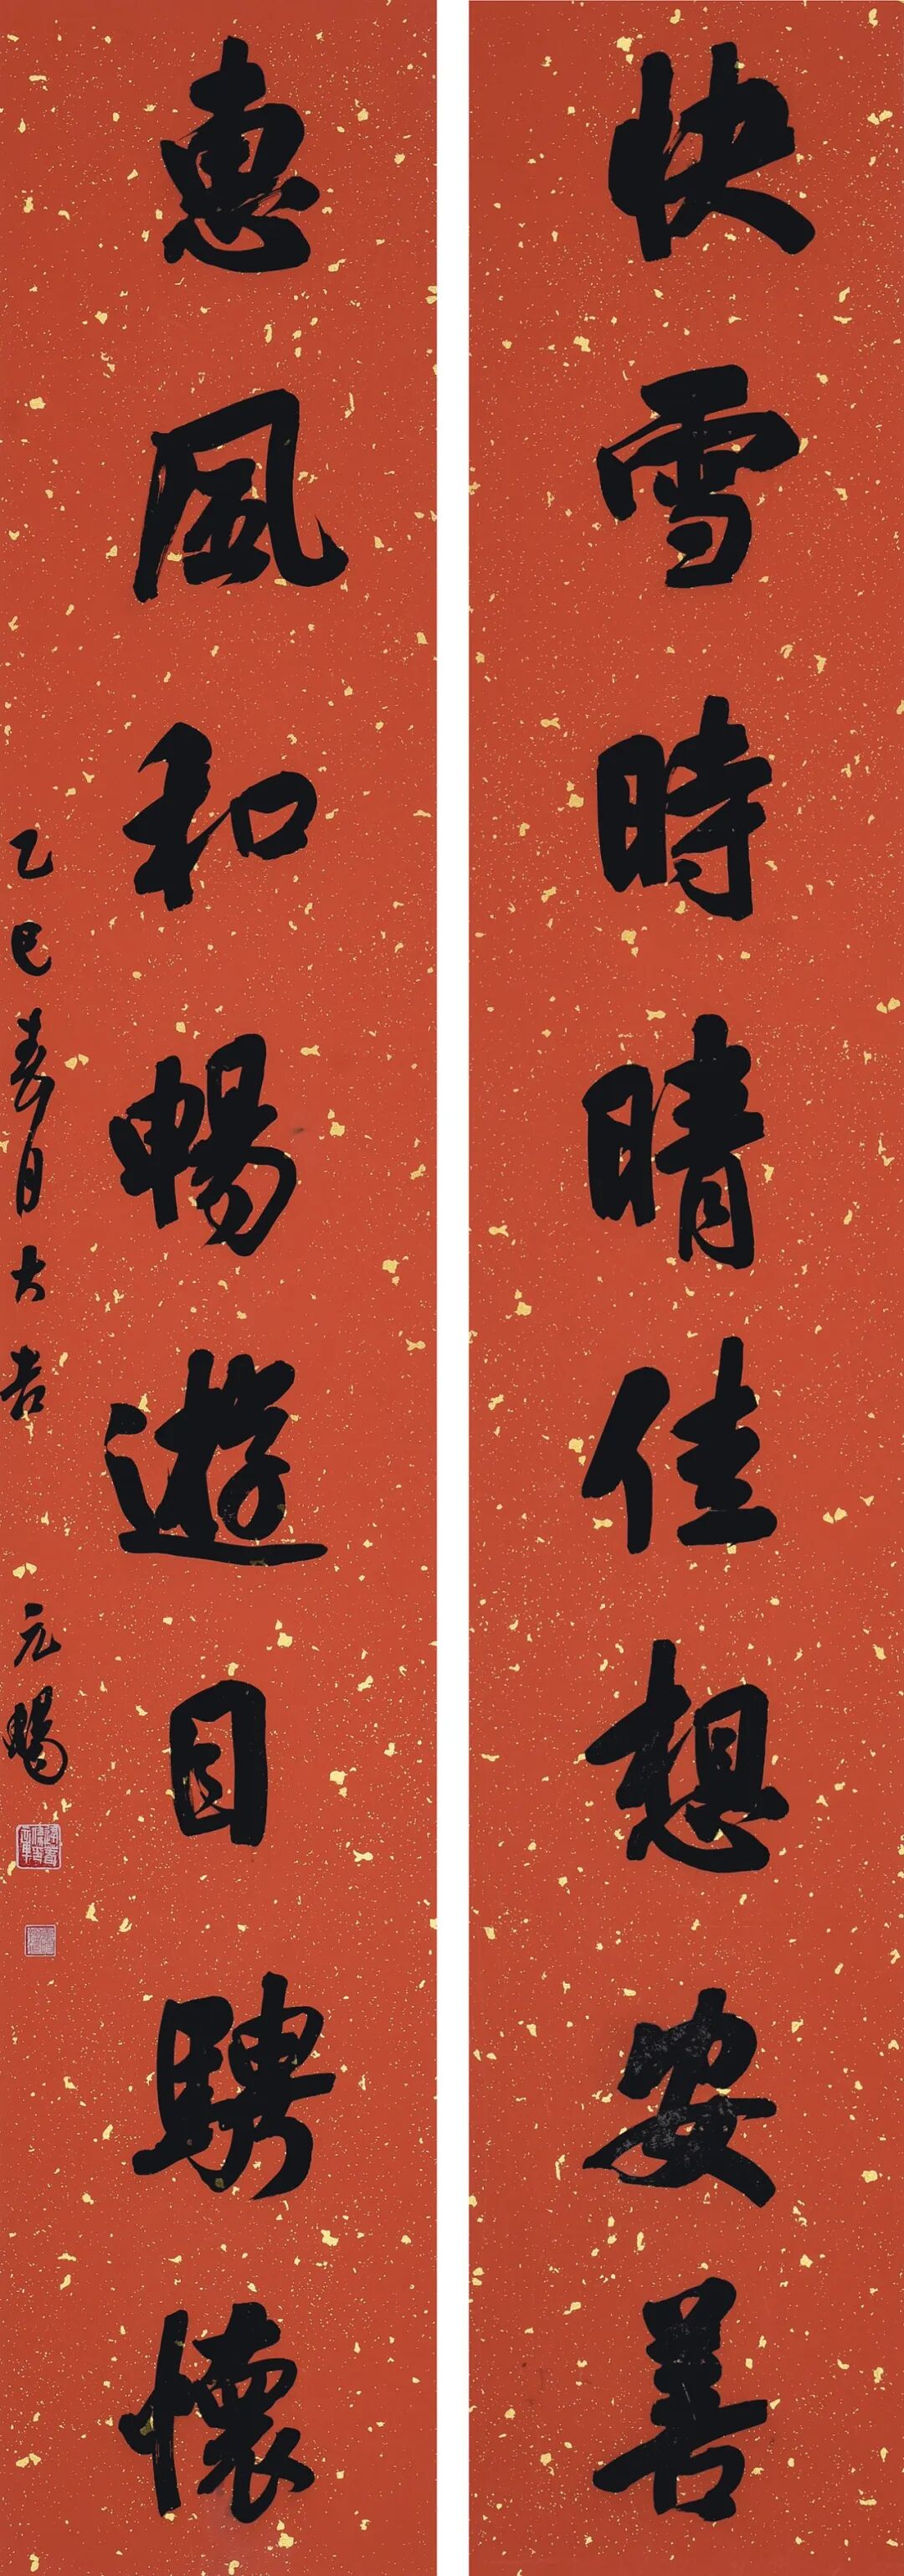 快雪時晴佳想安善
惠風和暢遊目騁懷
乙巳春月大吉 元暘